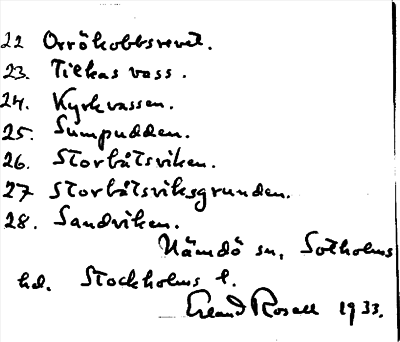 22 Orrökobbsrevet.
23. Tickas vass.
24. Kyrkvassen.
25. Sumpudden.
26. Storbåtsviken.
27 Storbåtsviksgrunden.
28. Sandviken.
Nämdö sn, Sotholms
hd. Stockholms l.
Erland Rosell 1933.